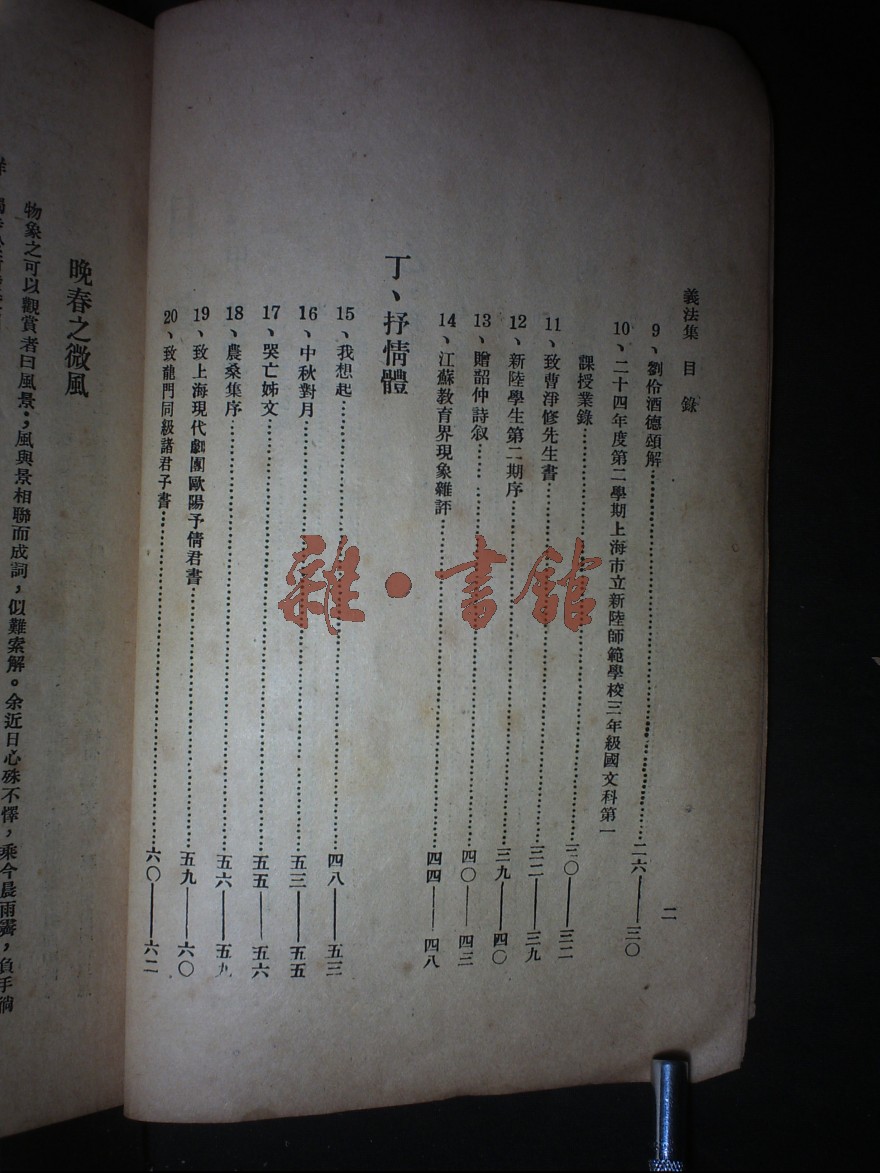 義法集 目錄
二
9、劉伶酒德頌解……二六——三〇
10、二十四年度第二學期上海市立新陸師範學校三年級國文科第一
課授業錄……三〇——三二
11、致曹淨修先生書……三二——三九
12、新陸學生第二期序……三九——四〇
13、贈韶仲詩叙……四〇——四三
14、江蘇教育界現象雜評……四四——四八
丁、抒情體
15、我想起……四八——五三
16、中秋對月……五三——五五
17、哭亡姊文……五五——五六
18、農桑集序……五六——五九
19、致上海現代劇團歐陽予倩君書……五九——六〇
20、致龍門同級諸君子書……六〇——六二
晚春之微風
物象之可以觀賞者曰風景；風與景相聯而成詞，似難索解。余近日心殊不懌，乘今晨雨霽，負手徜
雜·書館